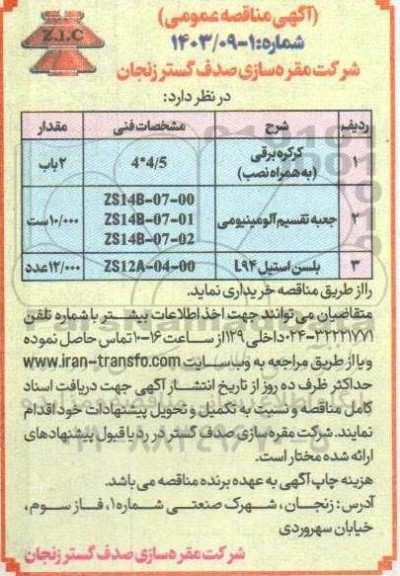 (آگهی مناقصه عمومی)
شماره: ۱-۱۴۰۳/۰۹
شرکت مقره سازی صدف گستر زنجان
Z.I.C
در نظر دارد:
ردیف شرح مشخصات فنی مقدار
۱ کرکره برقی (به همراه نصب) 4*4/5 ۲ باب
۲ جعبه تقسیم آلومینیومی ZS14B-07-00 ۱۰/۰۰۰ ست
ZS14B-07-01
ZS14B-07-02
۳ بلسن استیل L۹۴ ZS12A-04-00 ۱۲/۰۰۰ عدد
را از طریق مناقصه خریداری نماید.
متقاضیان می توانند جهت اخذ اطلاعات بیشتر با شماره تلفن
۰۲۴-۳۲۲۲۱۷۷۱ داخلی ۱۲۹ از ساعت ۱۶-۱۰ تماس حاصل نموده
و یا از طریق مراجعه به وب سایت www.iran-transfo.com
حداکثر ظرف ده روز از تاریخ انتشار آگهی جهت دریافت اسناد
کامل مناقصه و نسبت به تکمیل و تحویل پیشنهادات خود اقدام
نمایند. شرکت مقره سازی صدف گستر در رد یا قبول پیشنهادهای
ارائه شده مختار است.
هزینه چاپ آگهی به عهده برنده مناقصه می باشد.
آدرس: زنجان، شهرک صنعتی شماره ۱، فاز سوم،
خیابان سهروردی
شرکت مقره سازی صدف گستر زنجان